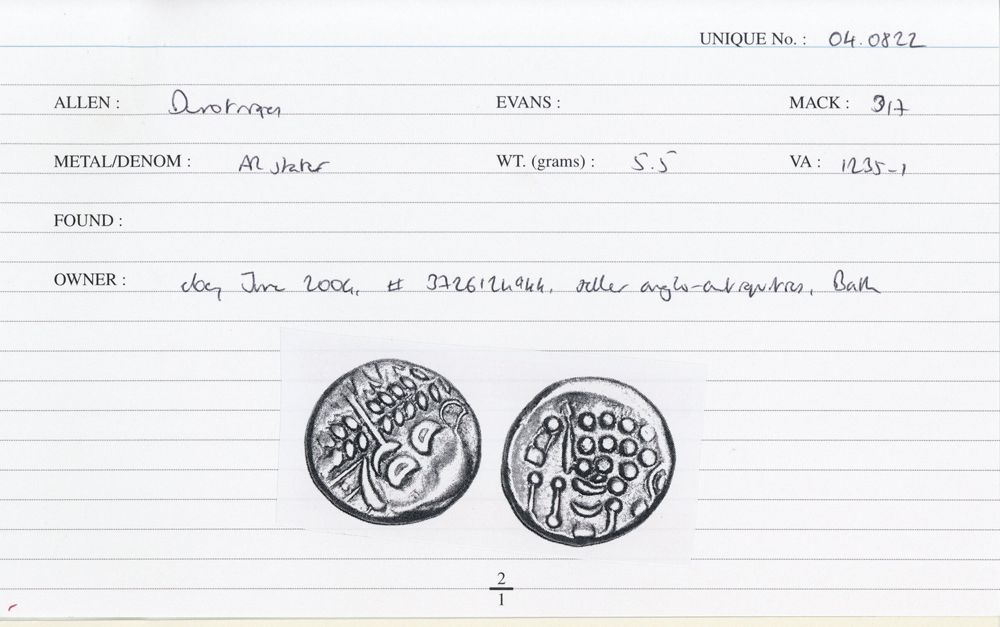 UNIQUE No. : 04.0822
ALLEN : Durotriges EVANS : MACK : 317
METAL/DENOM : AR stater WT. (grams) : 5.5 VA : 1235-1
FOUND :
OWNER : ebay June 2004, # 3726124944, seller anglo-antiquities, Bath
2
1